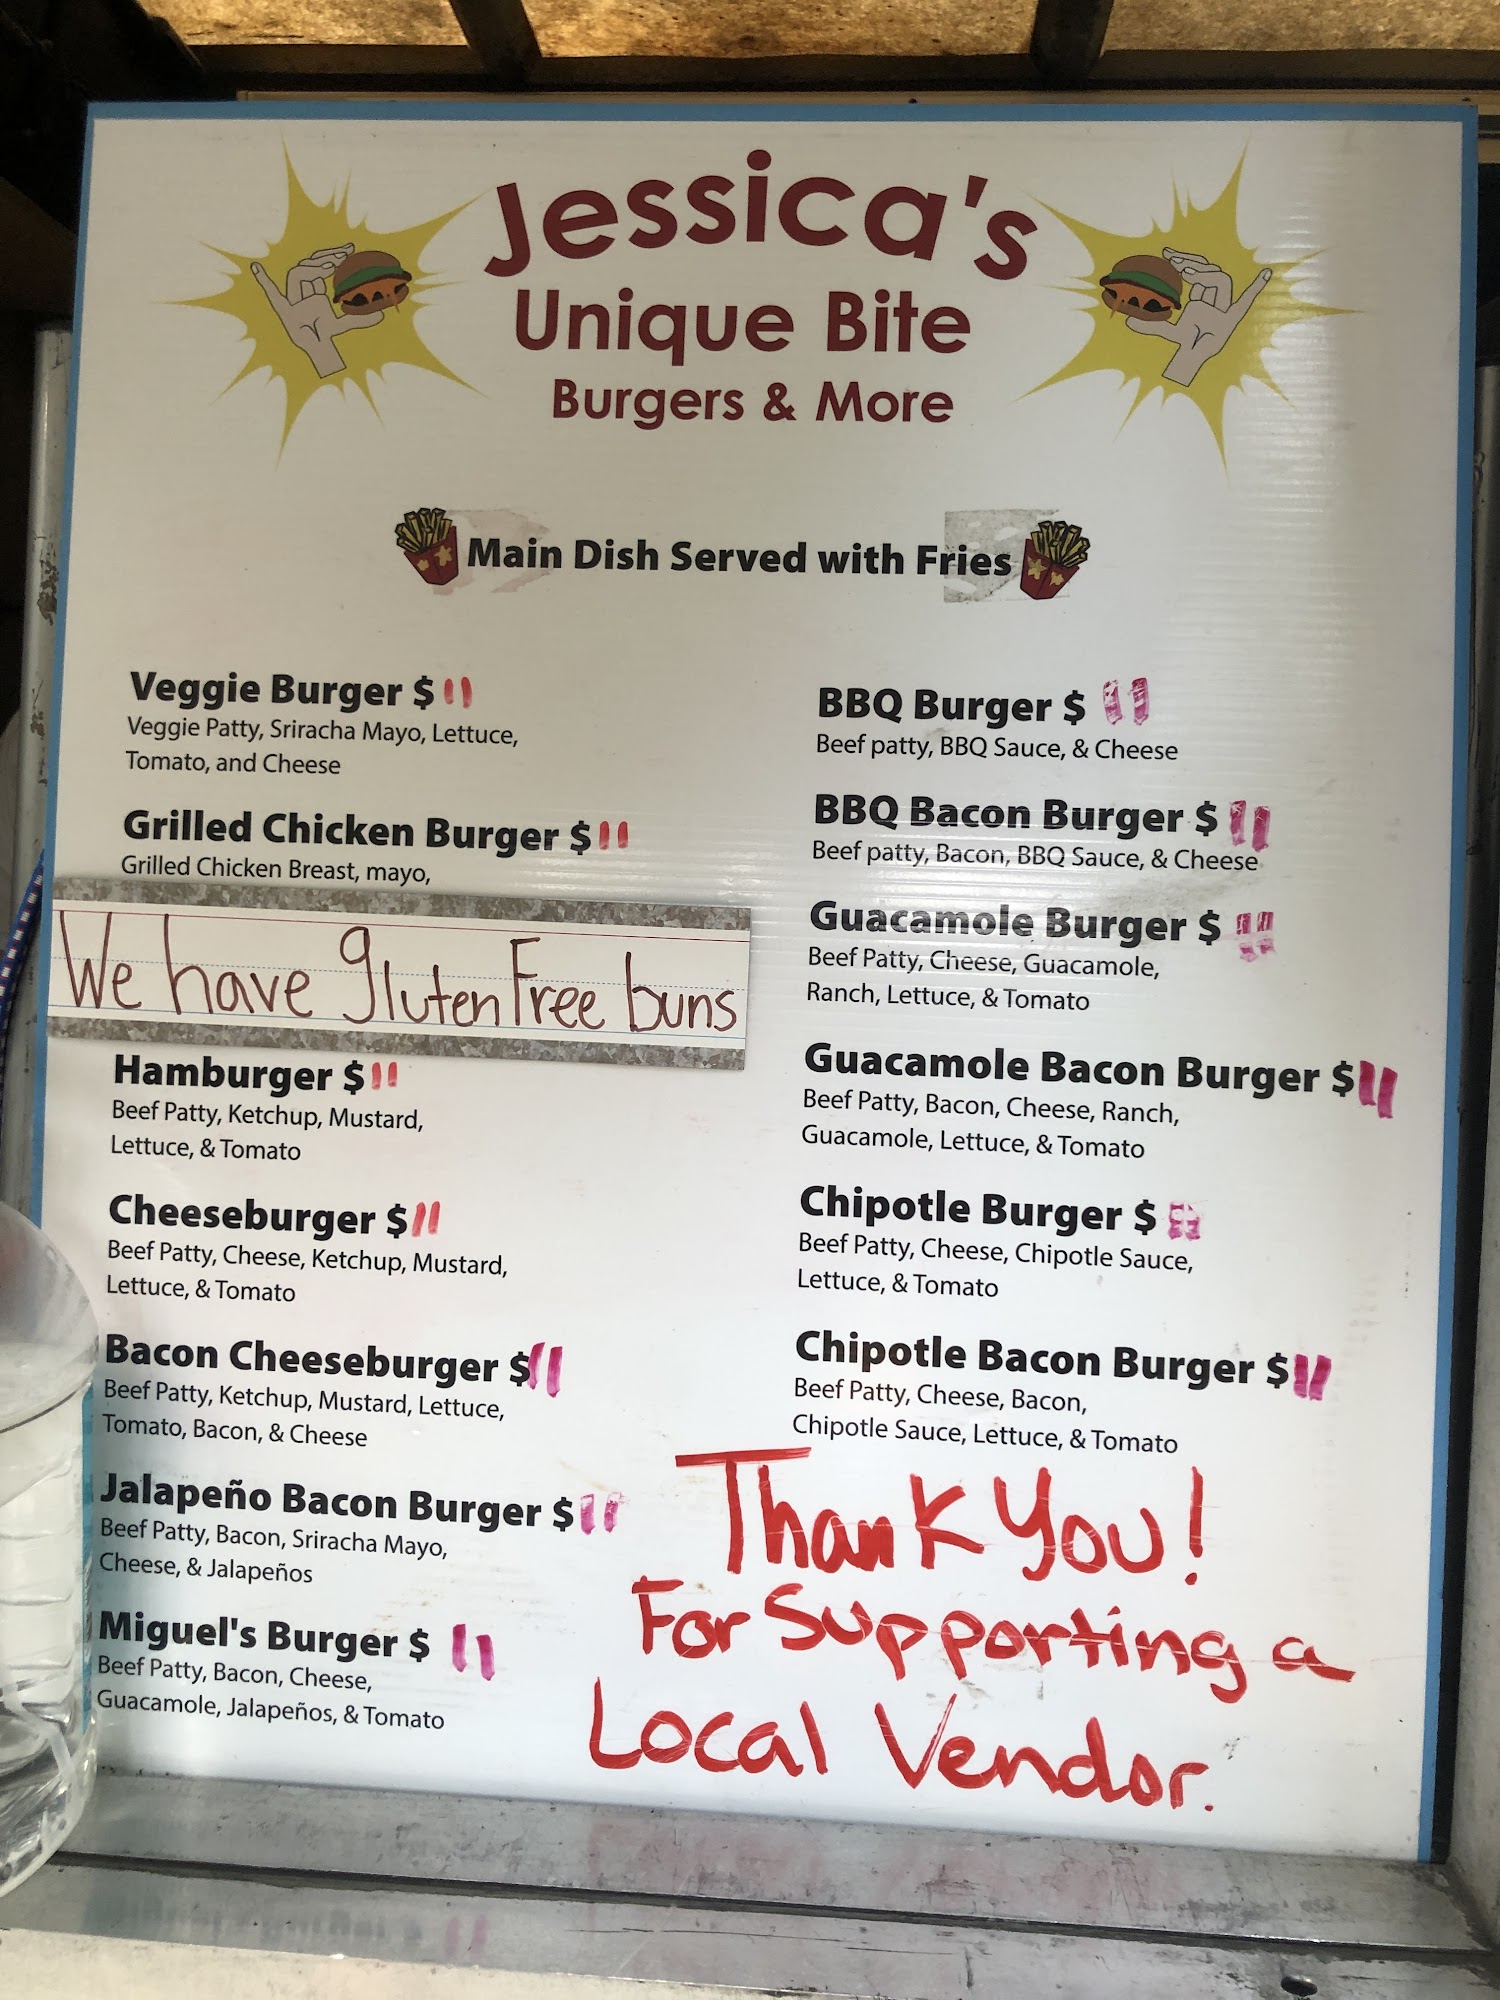 Jessica's
Unique Bite
Burgers & More
Main Dish Served with Fries
Veggie Burger $ 11
Veggie Patty, Sriracha Mayo, Lettuce,
Tomato, and Cheese
Grilled Chicken Burger $11
Grilled Chicken Breast, mayo,
We have gluten Free buns
Hamburger $11
Beef Patty, Ketchup, Mustard,
Lettuce, & Tomato
Cheeseburger $11
Beef Patty, Cheese, Ketchup, Mustard,
Lettuce, & Tomato
Bacon Cheeseburger $11
Beef Patty, Ketchup, Mustard, Lettuce,
Tomato, Bacon, & Cheese
Jalapeño Bacon Burger $11
Beef Patty, Bacon, Sriracha Mayo,
Cheese, & Jalapeños
Miguel's Burger $ 11
Beef Patty, Bacon, Cheese,
Guacamole, Jalapeños, & Tomato
BBQ Burger $ 11
Beef patty, BBQ Sauce, & Cheese
BBQ Bacon Burger $ 11
Beef patty, Bacon, BBQ Sauce, & Cheese
Guacamole Burger $ 11
Beef Patty, Cheese, Guacamole,
Ranch, Lettuce, & Tomato
Guacamole Bacon Burger $11
Beef Patty, Bacon, Cheese, Ranch,
Guacamole, Lettuce, & Tomato
Chipotle Burger $ 11
Beef Patty, Cheese, Chipotle Sauce,
Lettuce, & Tomato
Chipotle Bacon Burger $11
Beef Patty, Cheese, Bacon,
Chipotle Sauce, Lettuce, & Tomato
Thank You!
For Supporting a
Local Vendor.